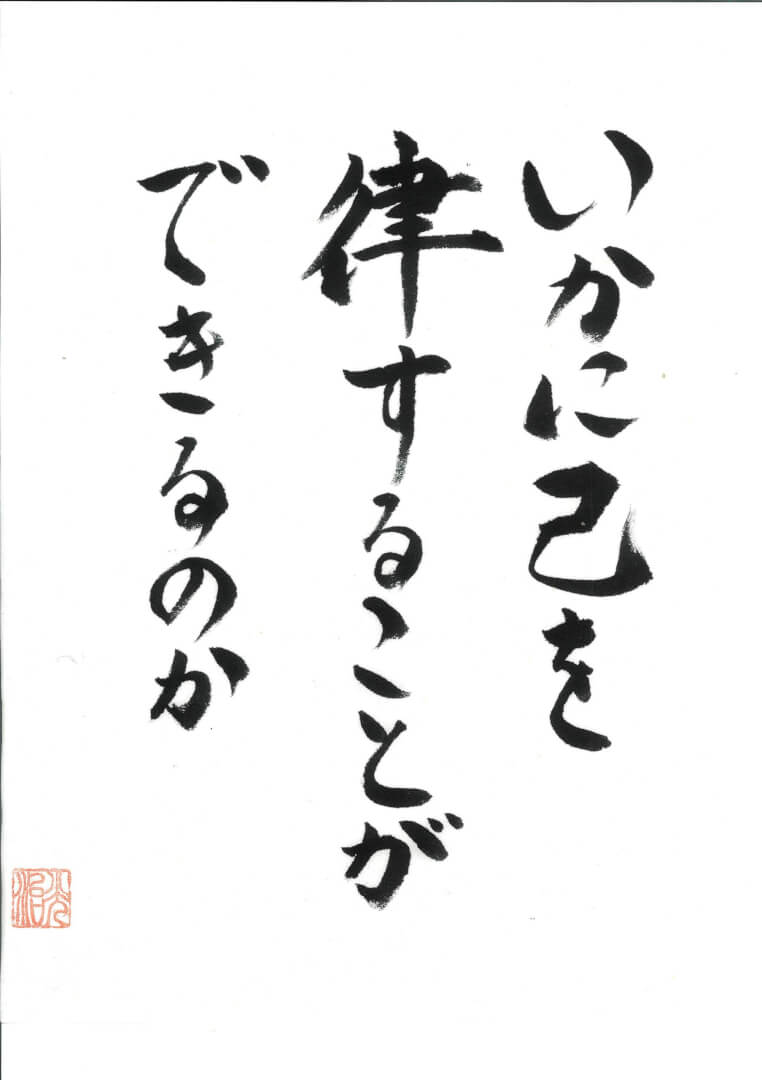 いかに己を
律することが
できるのか